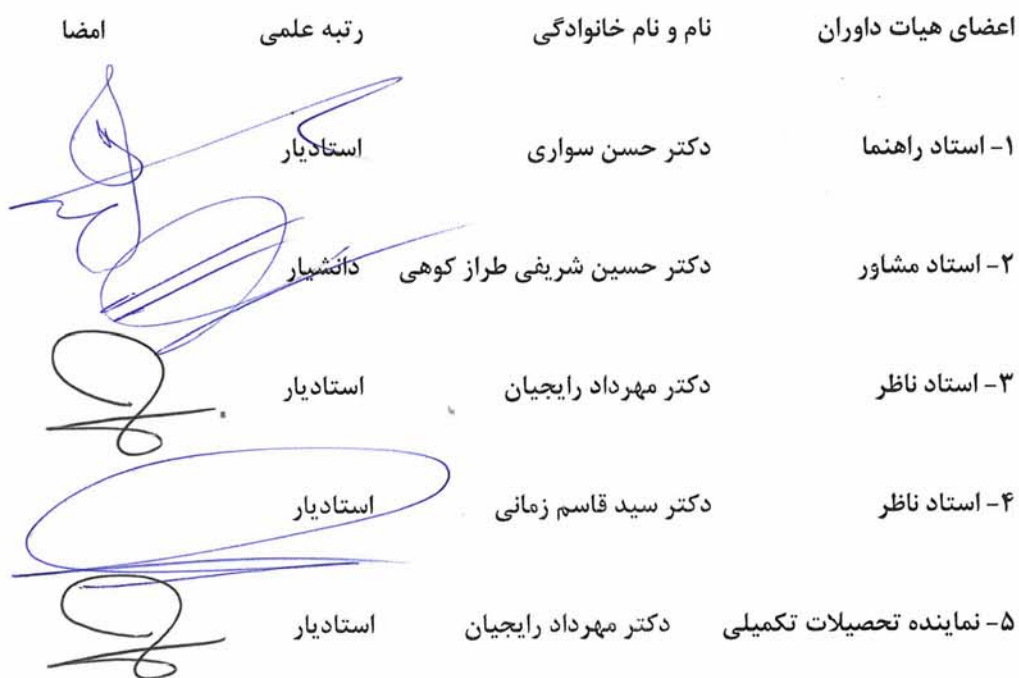 اعضای هیات داوران نام و نام خانوادگی رتبه علمی امضا
۱- استاد راهنما دکتر حسن سواری استادیار
۲- استاد مشاور دکتر حسین شریفی طراز کوهی دانشیار
۳- استاد ناظر دکتر مهرداد رایجیان استادیار
۴- استاد ناظر دکتر سید قاسم زمانی استادیار
۵- نماینده تحصیلات تکمیلی دکتر مهرداد رایجیان استادیار